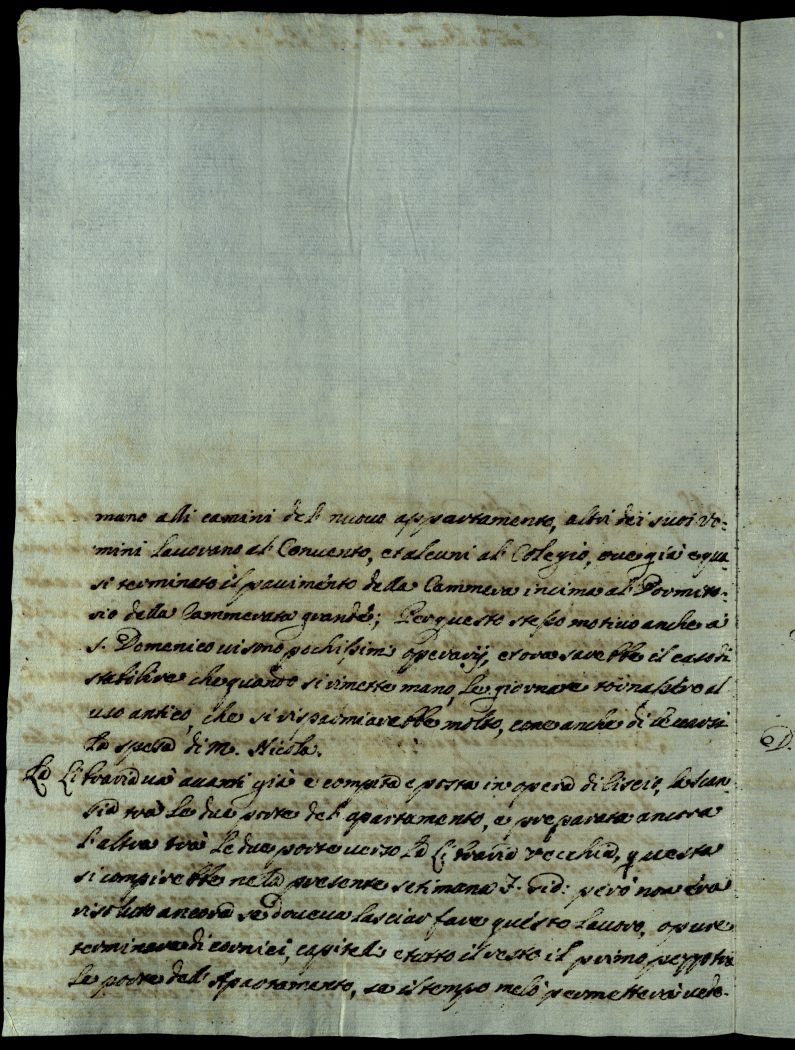 mano alli camini del nuovo appartamento, altri dei suoi vo:
mini lavorano al Convento, et alcuni al Colegio, ove già è qua
si terminato il pavimento della Cammera in cima al Dormito:
rio della Cammerata grande; Per questo stesso motivo anche a
S. Domenico vi sono pochissimi operarij, et ora sarebbe il caso di
stabilire che quando si rimette mano, le giornate
uso antico, che si risparmiarebbe molto, come anche di
la spesa di m. Nicola.
La Libraria và avanti già è compita e posta in opera di liscio, la scan
sia trà le due porte del apartamento, e preparata ancora
l'altra trà le due porte verso la Libraria vecchia, questa
si compirebbe nela presente setimana però non éra
risoluto ancora se doveva lasciar fare questo lavoro, opure
terminare di cornici, capitelli e tutto il resto il primo pezzo tra
le porte dell'Apartamento, se il tempo melo permetterà vede-
D.